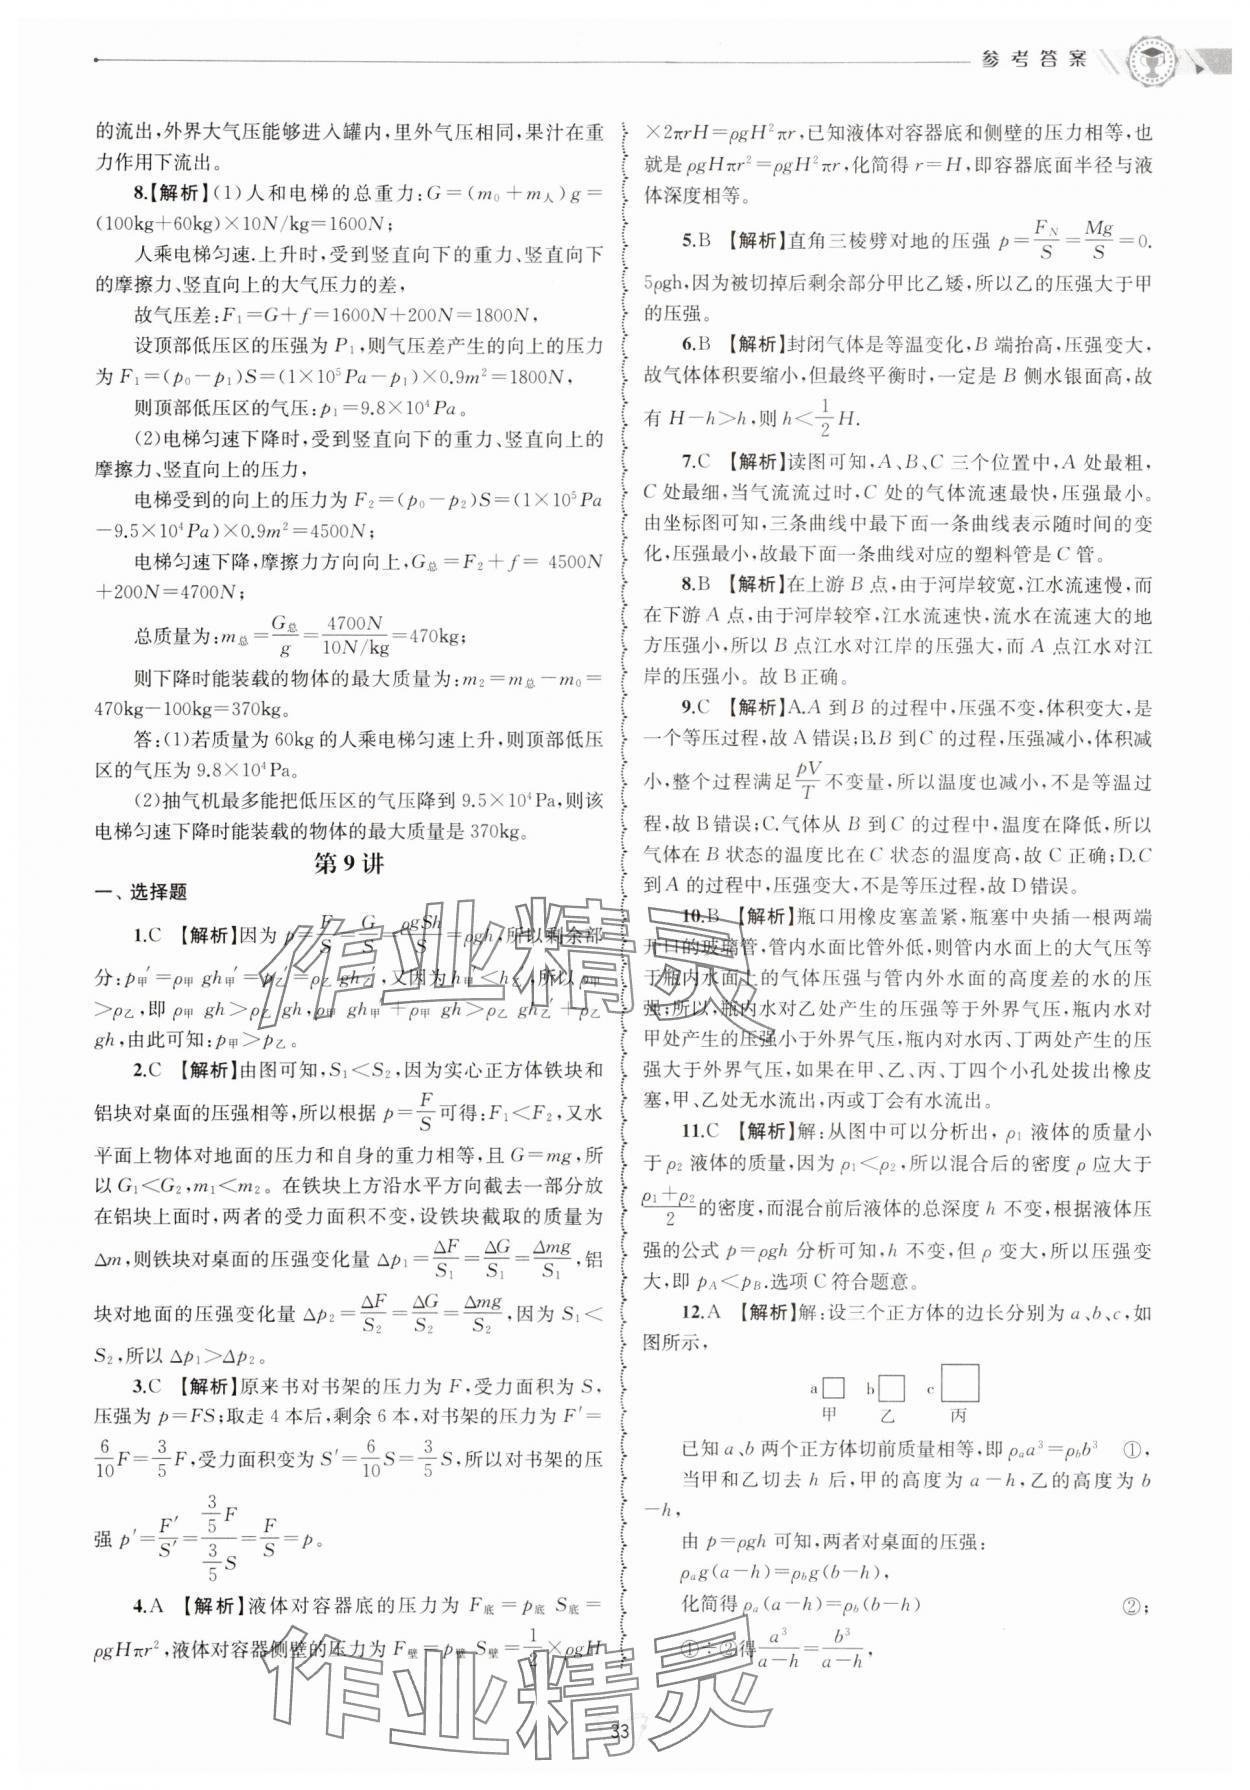 参考答案
的流出,外界大气压能够进入罐内,里外气压相同,果汁在重
力作用下流出。
8.【解析】(1)人和电梯的总重力:G=(m₀+m人)g=
(100kg+60kg)×10N/kg=1600N;
人乘电梯匀速.上升时,受到竖直向下的重力、竖直向下
的摩擦力、竖直向上的大气压力的差,
故气压差:F₁=G+f=1600N+200N=1800N,
设顶部低压区的压强为 P₁,则气压差产生的向上的压力
为 F₁=(p₀-p₁)S=(1×10⁵Pa-p₁)×0.9m²=1800N,
则顶部低压区的气压:p₁=9.8×10⁴Pa。
(2)电梯匀速下降时,受到竖直向下的重力、竖直向上的
摩擦力、竖直向上的压力,
电梯受到的向上的压力为 F₂=(p₀-p₂)S=(1×10⁵Pa
-9.5×10⁴Pa)×0.9m²=4500N;
电梯匀速下降,摩擦力方向向上,G总=F₂+f= 4500N
+200N=4700N;
总质量为:m总=G总/g=4700N/10N/kg=470kg;
则下降时能装载的物体的最大质量为:m₂=m总-m₀=
470kg-100kg=370kg。
答:(1)若质量为60kg的人乘电梯匀速上升,则顶部低压
区的气压为9.8×10⁴Pa。
(2)抽气机最多能把低压区的气压降到9.5×10⁴Pa,则该
电梯匀速下降时能装载的物体的最大质量是370kg。
第9讲
一、选择题
1.C 【解析】因为 p=F/S=G/S=ρgSh/S=ρgh,所以剩余部
分:p甲′=ρ甲 gh甲′=p乙′=ρ乙 gh乙′,又因为h甲′<h乙′,所以 ρ甲
>ρ乙,即 ρ甲 gh>ρ乙 gh,ρ甲 gh甲′+ρ甲 gh>ρ乙 gh乙′+ρ乙
gh,由此可知:p甲>p乙。
2.C 【解析】由图可知,S₁<S₂,因为实心正方体铁块和
铝块对桌面的压强相等,所以根据 p=F/S可得:F₁<F₂,又水
平面上物体对地面的压力和自身的重力相等,且 G=mg,所
以G₁<G₂,m₁<m₂。在铁块上方沿水平方向截去一部分放
在铝块上面时,两者的受力面积不变,设铁块截取的质量为
Δm,则铁块对桌面的压强变化量 Δp₁=ΔF/S₁=ΔG/S₁=Δmg/S₁,铝
块对地面的压强变化量 Δp₂=ΔF/S₂=ΔG/S₂=Δmg/S₂,因为 S₁<
S₂,所以 Δp₁>Δp₂。
3.C 【解析】原来书对书架的压力为 F,受力面积为 S,
压强为 p=FS;取走 4 本后,剩余 6 本,对书架的压力为 F′=
6/10F=3/5F,受力面积变为 S′=6/10S=3/5S,所以对书架的压
强 p′=F′/S′=(3/5F)/(3/5S)=F/S=p。
4.A 【解析】液体对容器底的压力为 F底=p底 S底=
ρgHπr²,液体对容器侧壁的压力为 F壁=p壁 S壁=1/2×ρgH
×2πrH=ρgH²πr,已知液体对容器底和侧壁的压力相等,也
就是 ρgHπr²=ρgH²πr,化简得 r=H,即容器底面半径与液
体深度相等。
5.B 【解析】直角三棱劈对地的压强 p=F_N/S=Mg/S=0.
5ρgh,因为被切掉后剩余部分甲比乙矮,所以乙的压强大于甲
的压强。
6.B 【解析】封闭气体是等温变化,B 端抬高,压强变大,
故气体体积要缩小,但最终平衡时,一定是 B 侧水银面高,故
有 H-h>h,则 h<1/2H.
7.C 【解析】读图可知,A、B、C 三个位置中,A 处最粗,
C 处最细,当气流流过时,C 处的气体流速最快,压强最小。
由坐标图可知,三条曲线中最下面一条曲线表示随时间的变
化,压强最小,故最下面一条曲线对应的塑料管是 C 管。
8.B 【解析】在上游 B 点,由于河岸较宽,江水流速慢,而
在下游 A 点,由于河岸较窄,江水流速快,流水在流速大的地
方压强小,所以 B 点江水对江岸的压强大,而 A 点江水对江
岸的压强小。故 B 正确。
9.C 【解析】A.A 到 B 的过程中,压强不变,体积变大,是
一个等压过程,故 A 错误;B.B 到 C 的过程,压强减小,体积减
小,整个过程满足pV/T不变量,所以温度也减小,不是等温过
程,故 B 错误;C.气体从 B 到 C 的过程中,温度在降低,所以
气体在 B 状态的温度比在 C 状态的温度高,故 C 正确;D.C
到 A 的过程中,压强变大,不是等压过程,故 D 错误。
10.B 【解析】瓶口用橡皮塞盖紧,瓶塞中央插一根两端
开口的玻璃管,管内水面比管外低,则管内水面上的大气压等
于瓶内水面上的气体压强与管内外水面的高度差的水的压
强;所以,瓶内水对乙处产生的压强等于外界气压,瓶内水对
甲处产生的压强小于外界气压,瓶内对水丙、丁两处产生的压
强大于外界气压,如果在甲、乙、丙、丁四个小孔处拔出橡皮
塞,甲、乙处无水流出,丙或丁会有水流出。
11.C 【解析】解:从图中可以分析出,ρ₁ 液体的质量小
于 ρ₂ 液体的质量,因为 ρ₁<ρ₂,所以混合后的密度 ρ 应大于
(ρ₁+ρ₂)/2的密度,而混合前后液体的总深度 h 不变,根据液体压
强的公式 p=ρgh 分析可知,h 不变,但 ρ 变大,所以压强变
大,即 p_A<p_B.选项C符合题意。
12.A 【解析】解:设三个正方体的边长分别为 a、b、c,如
图所示,
a b c
甲 乙 丙
已知 a、b 两个正方体切前质量相等,即 ρₐa³=ρ_b b³ ①,
当甲和乙切去 h 后,甲的高度为 a-h,乙的高度为 b
-h,
由 p=ρgh 可知,两者对桌面的压强:
ρₐg(a-h)=ρ_b g(b-h),
化简得 ρₐ(a-h)=ρ_b(b-h) ②;
①÷②得a³/(a-h)=b³/(a-h),
33
作业精灵
作业精灵